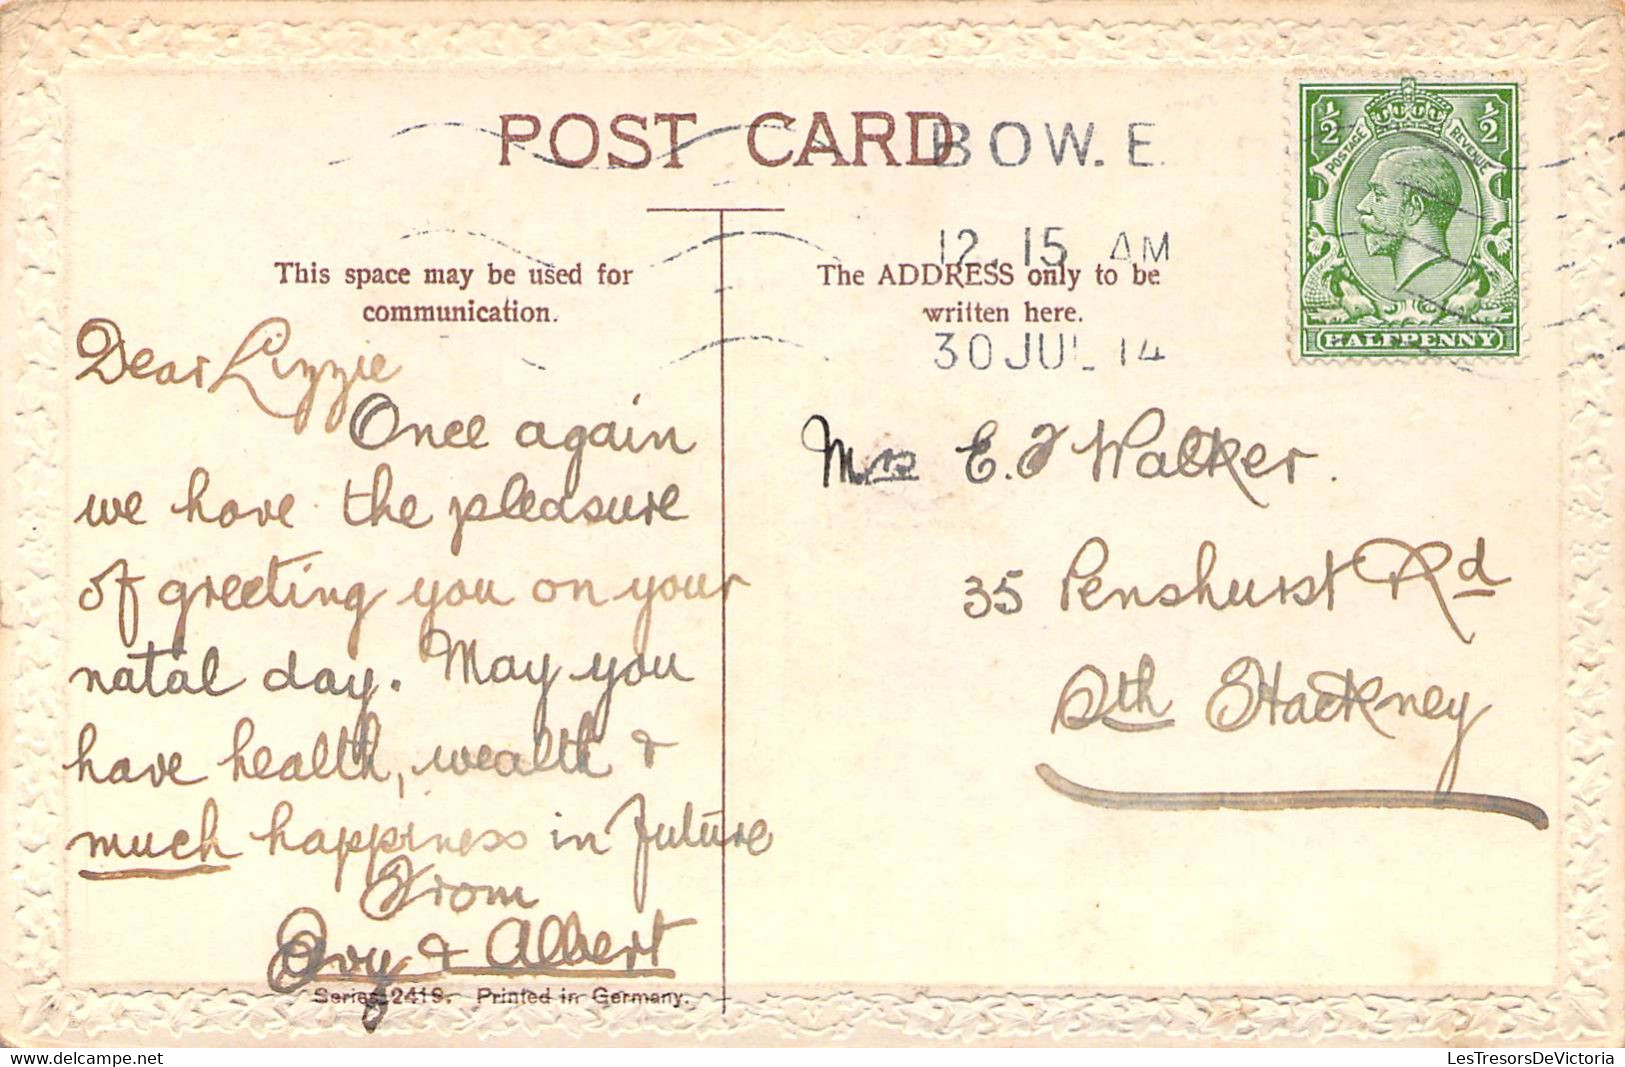 POST CARD
BOW. E.
12. 15 AM
30 JUL 14
½ ½
POSTAGE REVENUE
HALFPENNY
This space may be used for
communication.
The ADDRESS only to be
written here.
Dear Lizzie
Once again
we have the pleasure
of greeting you on your
natal day. May you
have health, wealth &
much happiness in future
From
Ivy & Albert
Series 2419. Printed in Germany.
Mrs E. J Walker.
35 Penshurst Rd
Sth Hackney
LesTresorsDeVictoria